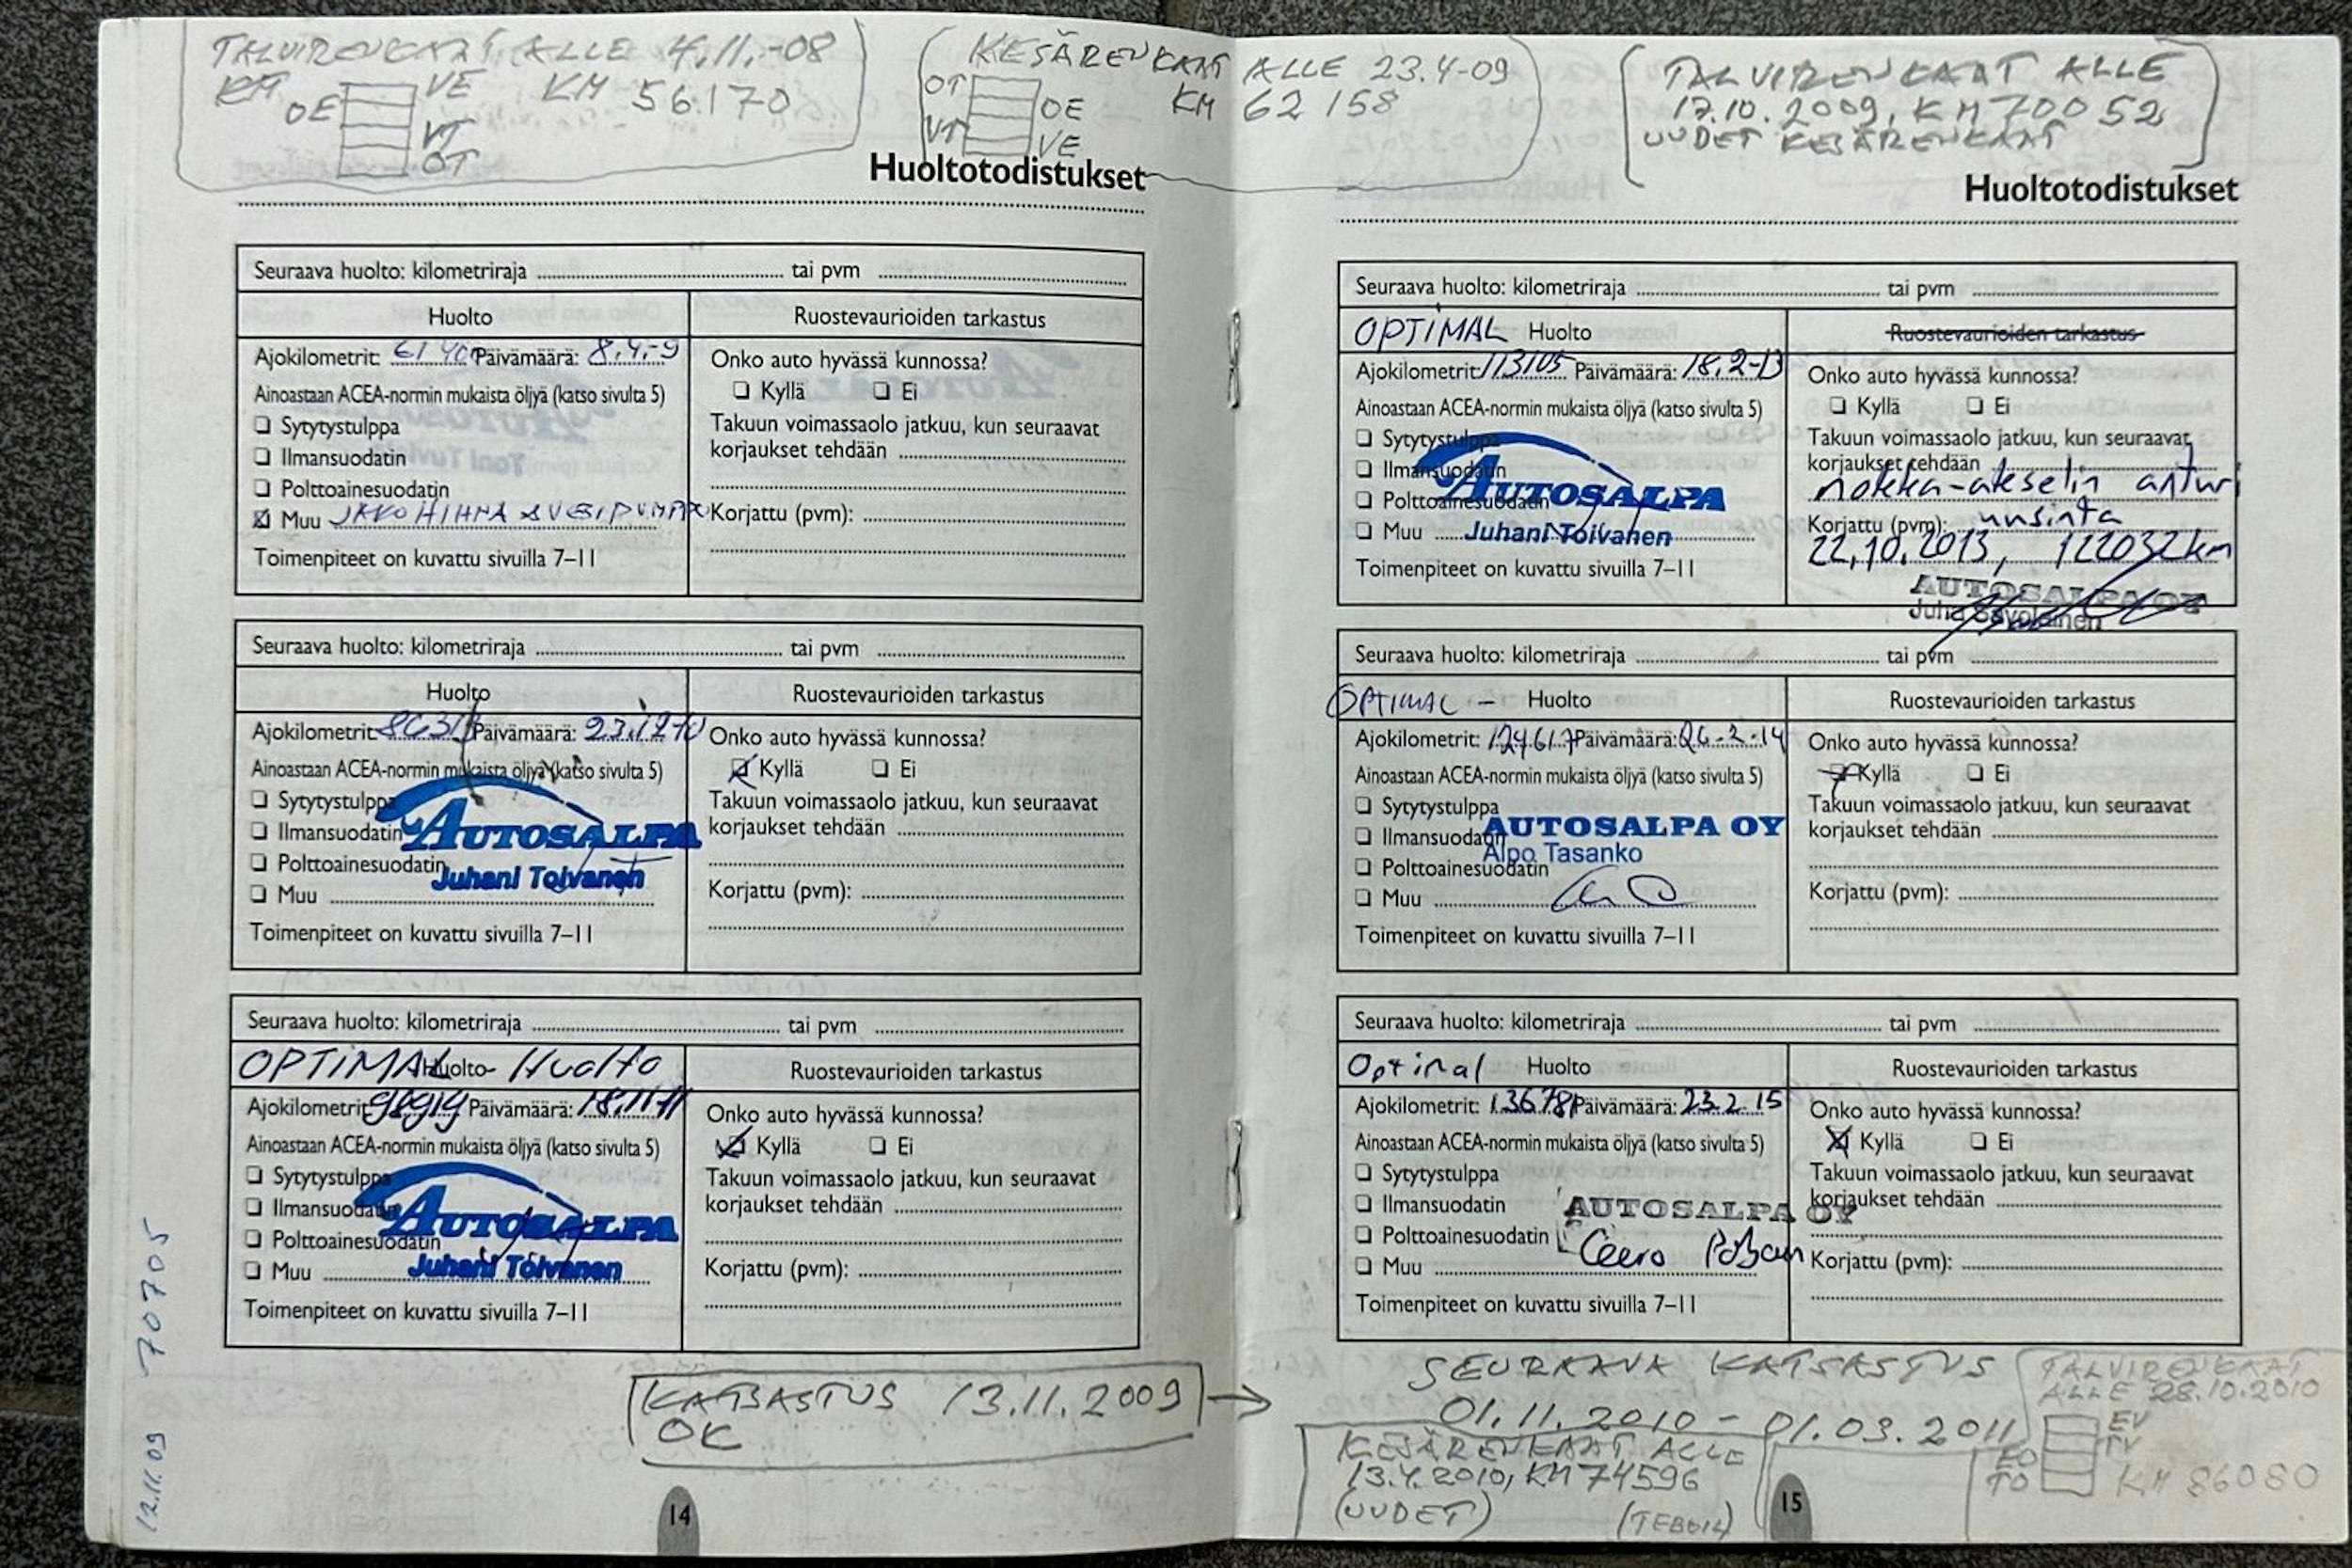 TALVIRENKAAT ALLE 4.11.-08
KM 56.170
OE VE
VT
OT
KESÄRENKAAT ALLE 23.4-09
KM 62 158
OT OE
VT VE
Huoltotodistukset
Seuraava huolto: kilometriraja ........ tai pvm ........
Huolto Ruostevaurioiden tarkastus
Ajokilometrit: Päivämäärä: 8.4.-9
Onko auto hyvässä kunnossa?
Ainoastaan ACEA-normin mukaista öljyä (katso sivulta 5)
❏ Kyllä ❏ Ei
❏ Sytytystulppa
Takuun voimassaolo jatkuu, kun seuraavat
❏ Ilmansuodatin
korjaukset tehdään ........
❏ Polttoainesuodatin
☒ Muu JAKOHIHNA & VESIPUMPPU
Korjattu (pvm): ........
Toimenpiteet on kuvattu sivuilla 7–11
Seuraava huolto: kilometriraja ........ tai pvm ........
Huolto Ruostevaurioiden tarkastus
Ajokilometrit: Päivämäärä: 23.12-10
Onko auto hyvässä kunnossa?
Ainoastaan ACEA-normin mukaista öljyä (katso sivulta 5)
☒ Kyllä ❏ Ei
❏ Sytytystulppa
Takuun voimassaolo jatkuu, kun seuraavat
❏ Ilmansuodatin
korjaukset tehdään ........
AUTOSALPA
❏ Polttoainesuodatin
Juhani Toivanen
❏ Muu ........
Korjattu (pvm): ........
Toimenpiteet on kuvattu sivuilla 7–11
Seuraava huolto: kilometriraja ........ tai pvm ........
OPTIMAL Huolto- Huolto Ruostevaurioiden tarkastus
Ajokilometrit: Päivämäärä: 18.11-11
Onko auto hyvässä kunnossa?
Ainoastaan ACEA-normin mukaista öljyä (katso sivulta 5)
☒ Kyllä ❏ Ei
❏ Sytytystulppa
Takuun voimassaolo jatkuu, kun seuraavat
❏ Ilmansuodatin
korjaukset tehdään ........
AUTOSALPA
❏ Polttoainesuodatin
Juhani Toivanen
❏ Muu ........
Korjattu (pvm): ........
Toimenpiteet on kuvattu sivuilla 7–11
12.11.09 70705
KATSASTUS 13.11.2009 →
OK
14
TALVIRENKAAT ALLE
17.10.2009, KM 70052
UUDET KESÄRENKAAT
Huoltotodistukset
Seuraava huolto: kilometriraja ........ tai pvm ........
OPTIMAL Huolto Ruostevaurioiden tarkastus
Ajokilometrit: 113105 Päivämäärä: 18.2-13
Onko auto hyvässä kunnossa?
Ainoastaan ACEA-normin mukaista öljyä (katso sivulta 5)
❏ Kyllä ❏ Ei
❏ Sytytystulppa
Takuun voimassaolo jatkuu, kun seuraavat
❏ Ilmansuodatin
korjaukset tehdään ........
nokka-akselin anturi
AUTOSALPA
❏ Polttoainesuodatin
❏ Muu ........
Juhani Toivanen
Korjattu (pvm): uusinta
22.10.2013, 122032km
Toimenpiteet on kuvattu sivuilla 7–11
AUTOSALPA OY
Juha Savolainen
Seuraava huolto: kilometriraja ........ tai pvm ........
OPTIMAL – Huolto Ruostevaurioiden tarkastus
Ajokilometrit: 124617 Päivämäärä: 26.2.14
Onko auto hyvässä kunnossa?
Ainoastaan ACEA-normin mukaista öljyä (katso sivulta 5)
☒ Kyllä ❏ Ei
❏ Sytytystulppa
Takuun voimassaolo jatkuu, kun seuraavat
❏ Ilmansuodatin
korjaukset tehdään ........
AUTOSALPA OY
Alpo Tasanko
❏ Polttoainesuodatin
❏ Muu ........
Korjattu (pvm): ........
Toimenpiteet on kuvattu sivuilla 7–11
Seuraava huolto: kilometriraja ........ tai pvm ........
Optimal Huolto Ruostevaurioiden tarkastus
Ajokilometrit: Päivämäärä: 23.2.15
Onko auto hyvässä kunnossa?
Ainoastaan ACEA-normin mukaista öljyä (katso sivulta 5)
☒ Kyllä ❏ Ei
❏ Sytytystulppa
Takuun voimassaolo jatkuu, kun seuraavat
❏ Ilmansuodatin
korjaukset tehdään ........
AUTOSALPA OY
❏ Polttoainesuodatin
❏ Muu ........
Korjattu (pvm): ........
Toimenpiteet on kuvattu sivuilla 7–11
SEURAAVA KATSASTUS
01.11.2010 – 01.03.2011
KESÄRENKAAT ALLE
13.4.2010, KM 74596
(UUDET) (TEBOIL)
TALVIRENKAAT
ALLE 28.10.2010
EV
TV
EO
TO
KM 86080
15